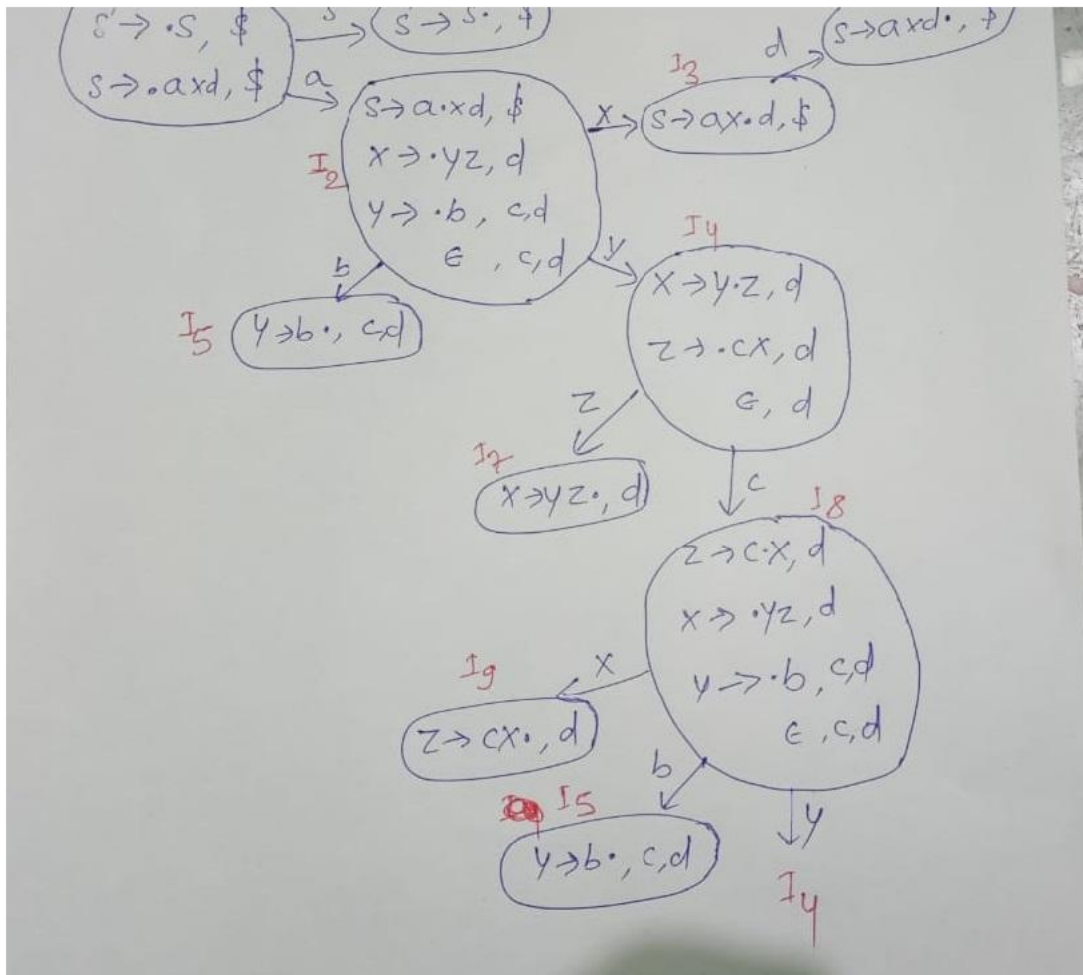 S'→ ·S, $
S
S→ S·, $
S→ ·axd, $
a
I2
S→ a·xd, $
X→ ·YZ, d
Y→ ·b, c,d
ϵ , c,d
X
I3
S→ ax·d, $
d
S→axd·, $
b
I5
Y→b·, c,d
Y
I4
X→Y·Z, d
Z→ ·cX, d
ϵ, d
Z
I7
X→YZ·, d
c
I8
Z→ c·X, d
X→ ·YZ, d
Y→ ·b, c,d
ϵ , c,d
X
I9
Z→ cX·, d
b
I5
Y→b·, c,d
Y
I4